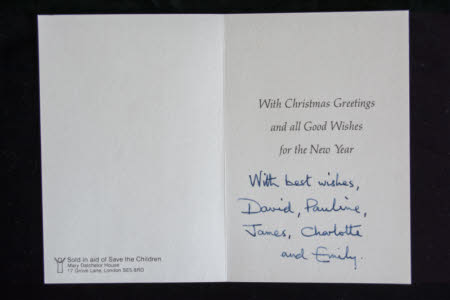 Sold in aid of Save the Children
Mary Datchelor House
17 Grove Lane, London SE5 8RD
With Christmas Greetings
and all Good Wishes
for the New Year
With best wishes,
David, Pauline,
James, Charlotte
and Emily.